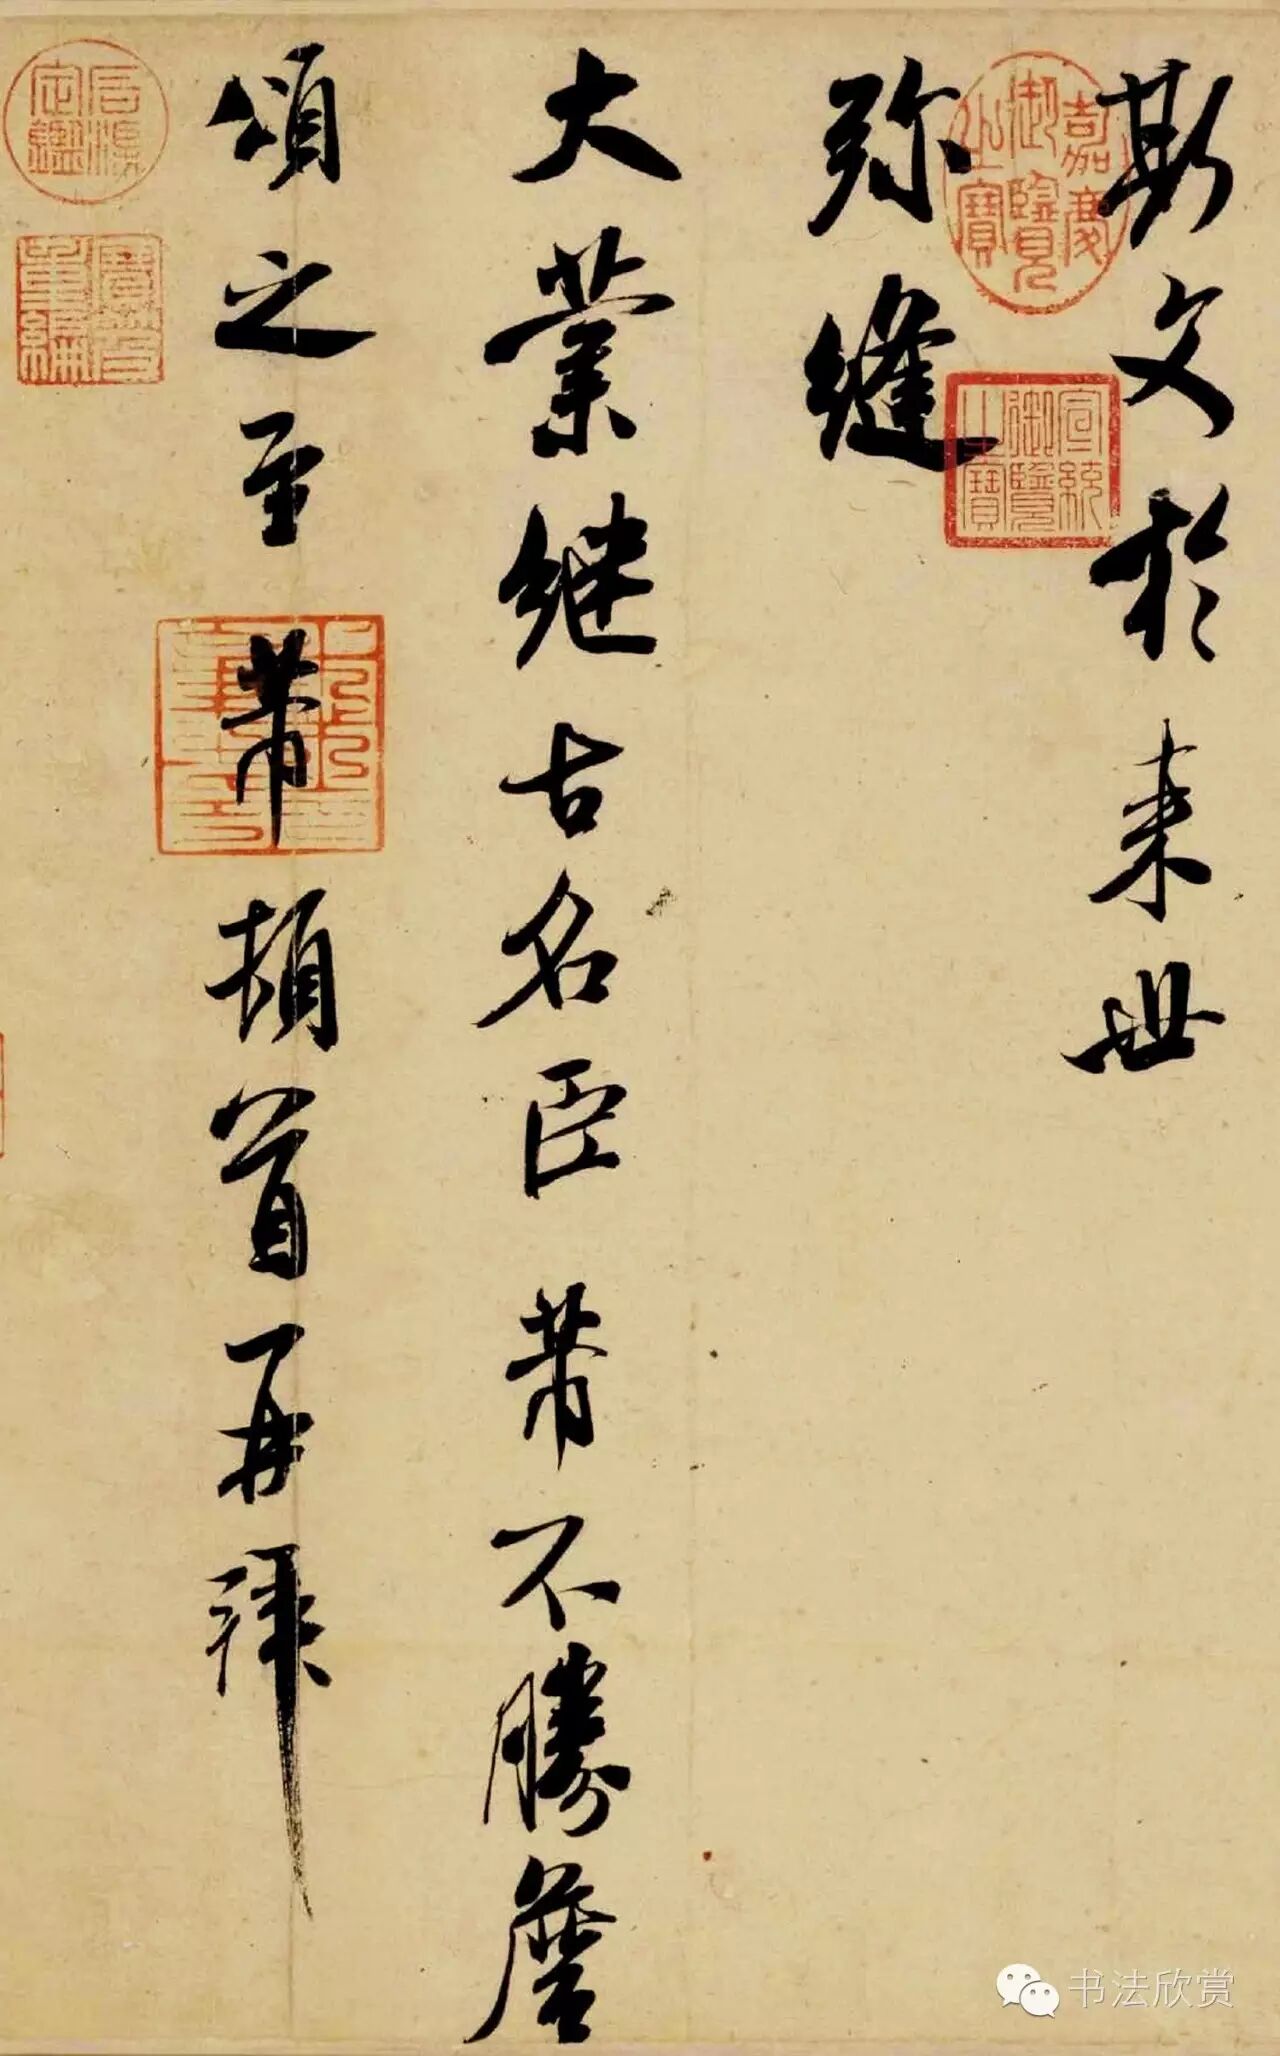 斯文於来世
弥縫
大業継古名臣芾不勝詹
頌之至 芾頓首再拜
嘉慶御覽之寶
宣統御覽之寶
石渠定鑑
寶笈重編
书法欣赏